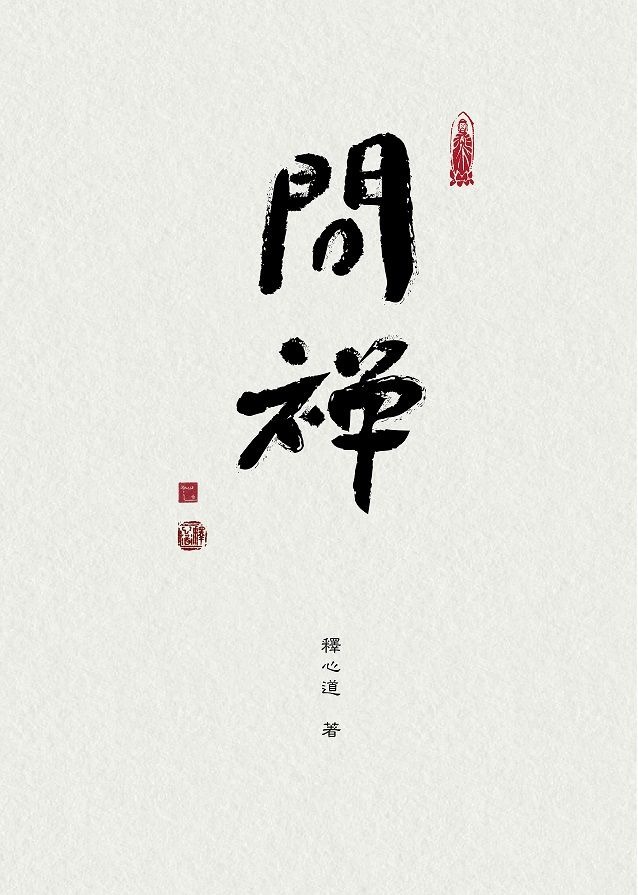 問禪
釋心道 著